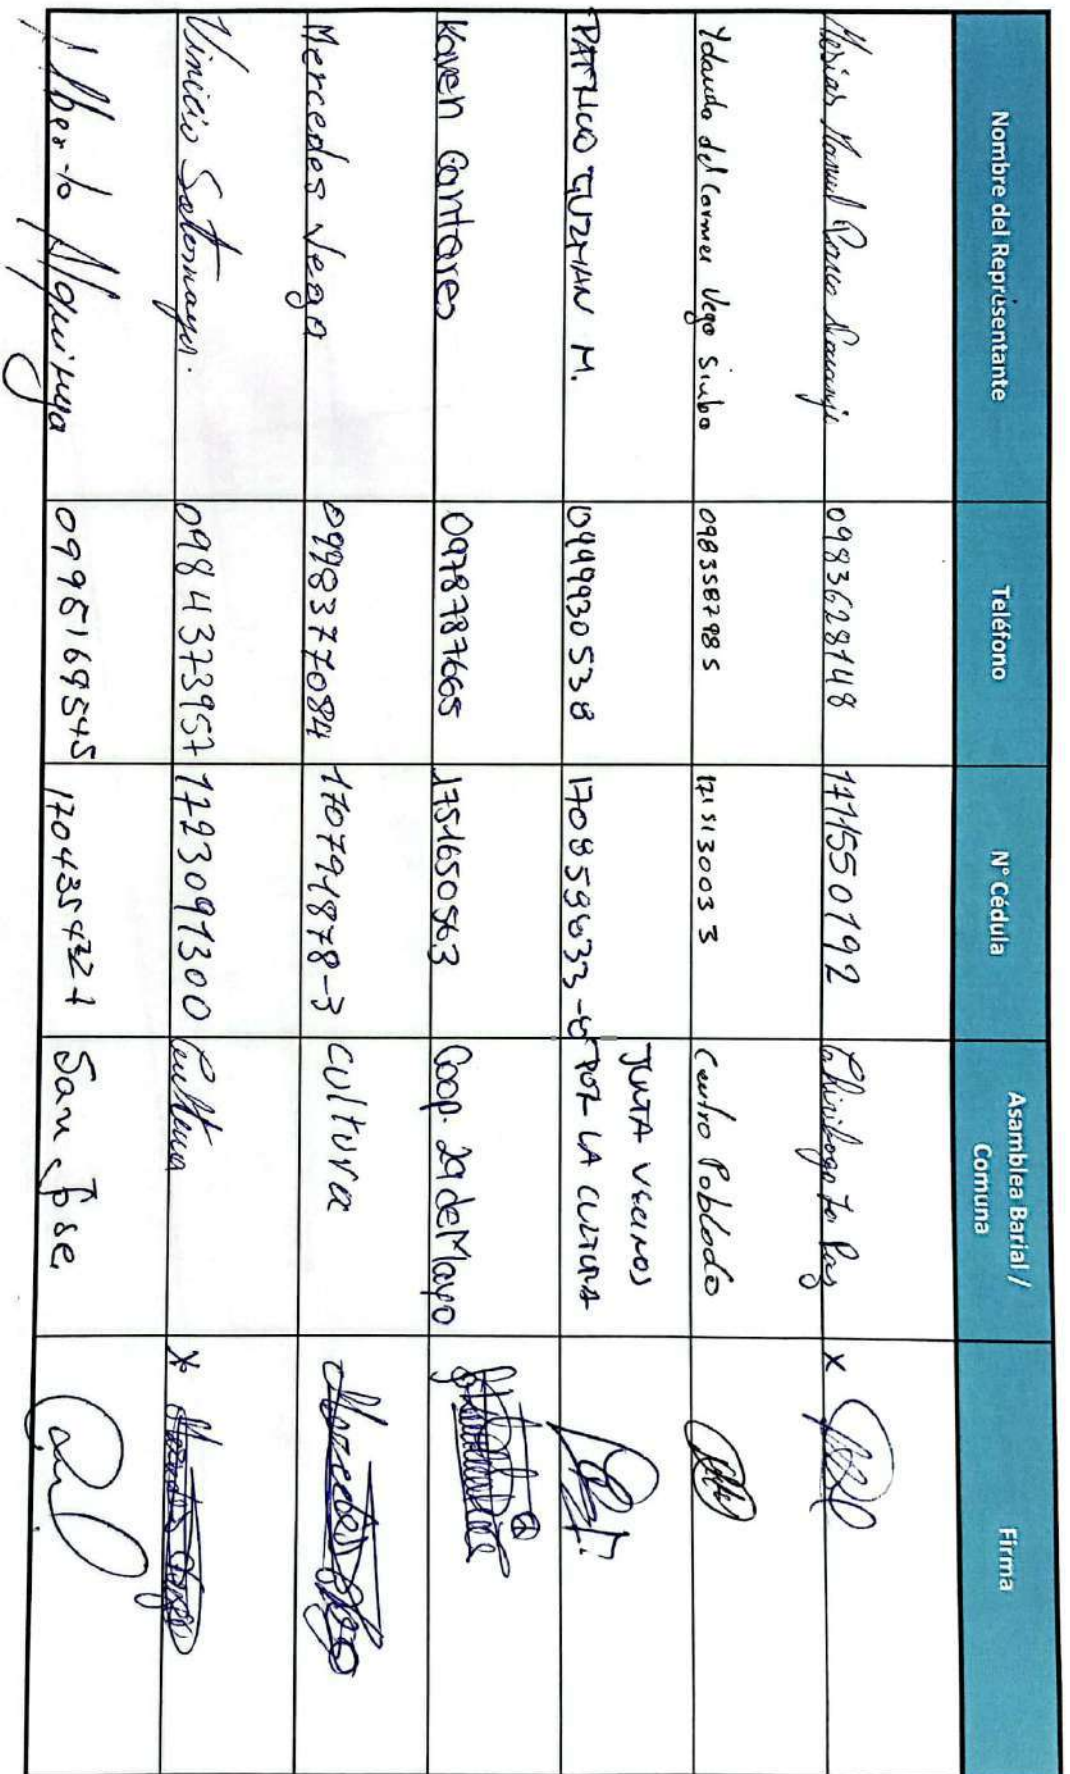 Nombre del Representante Teléfono N° Cédula Asamblea Barial / Comuna Firma
Mesias Manuel 0983628148 1711550192 Chiriboga La Paz x
Yolanda del Carmen Vega Simba 0983587985 171513003 3 Centro Poblado
PATRICIO GUZMAN M. 0999930538 170859633-8 JUNTA VECINOS POR LA CULTURA
Karen Cantores 0978787665 1751650563 Coop. 29 de Mayo
Mercedes Vega 0998377084 170791878-3 Cultura
Vinicio Sotomayor. 0984373957 1723091300 Cultura x
Alberto Alquinga San Jose